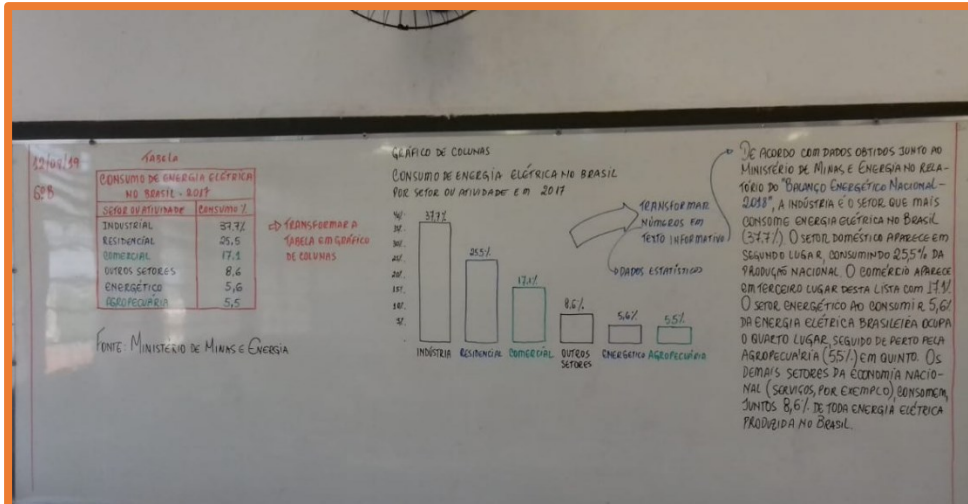 12/09/19
6ºB
TABELA
CONSUMO DE ENERGIA ELÉTRICA
NO BRASIL - 2017
SETOR OU ATIVIDADE CONSUMO %
INDUSTRIAL 37,7%
RESIDENCIAL 25,5
COMERCIAL 17,1
OUTROS SETORES 8,6
ENERGÉTICO 5,6
AGROPECUÁRIA 5,5
FONTE: MINISTÉRIO DE MINAS E ENERGIA
TRANSFORMAR A
TABELA EM GRÁFICO
DE COLUNAS
GRÁFICO DE COLUNAS
CONSUMO DE ENERGIA ELÉTRICA NO BRASIL
POR SETOR OU ATIVIDADE EM 2017
37,7%
25,5%
17,1%
8,6%
5,6%
5,5%
INDÚSTRIA RESIDENCIAL COMERCIAL OUTROS SETORES ENERGÉTICO AGROPECUÁRIA
TRANSFORMAR
NÚMEROS EM
TEXTO INFORMATIVO
DADOS ESTATÍSTICOS
DE ACORDO COM DADOS OBTIDOS JUNTO AO
MINISTÉRIO DE MINAS E ENERGIA NO RELA-
TÓRIO DO "BALANÇO ENERGÉTICO NACIONAL -
2018", A INDÚSTRIA É O SETOR QUE MAIS
CONSOME ENERGIA ELÉTRICA NO BRASIL
(37,7%). O SETOR DOMÉSTICO APARECE EM
SEGUNDO LUGAR, CONSUMINDO 25,5% DA
PRODUÇÃO NACIONAL. O COMÉRCIO APARECE
EM TERCEIRO LUGAR DESTA LISTA COM 17,1%.
O SETOR ENERGÉTICO AO CONSUMIR 5,6%
DA ENERGIA ELÉTRICA BRASILEIRA OCUPA
O QUARTO LUGAR, SEGUIDO DE PERTO PELA
AGROPECUÁRIA (5,5%) EM QUINTO. OS
DEMAIS SETORES DA ECONOMIA NACIO-
NAL (SERVIÇOS, POR EXEMPLO), CONSOMEM,
JUNTOS 8,6% DE TODA ENERGIA ELÉTRICA
PRODUZIDA NO BRASIL.